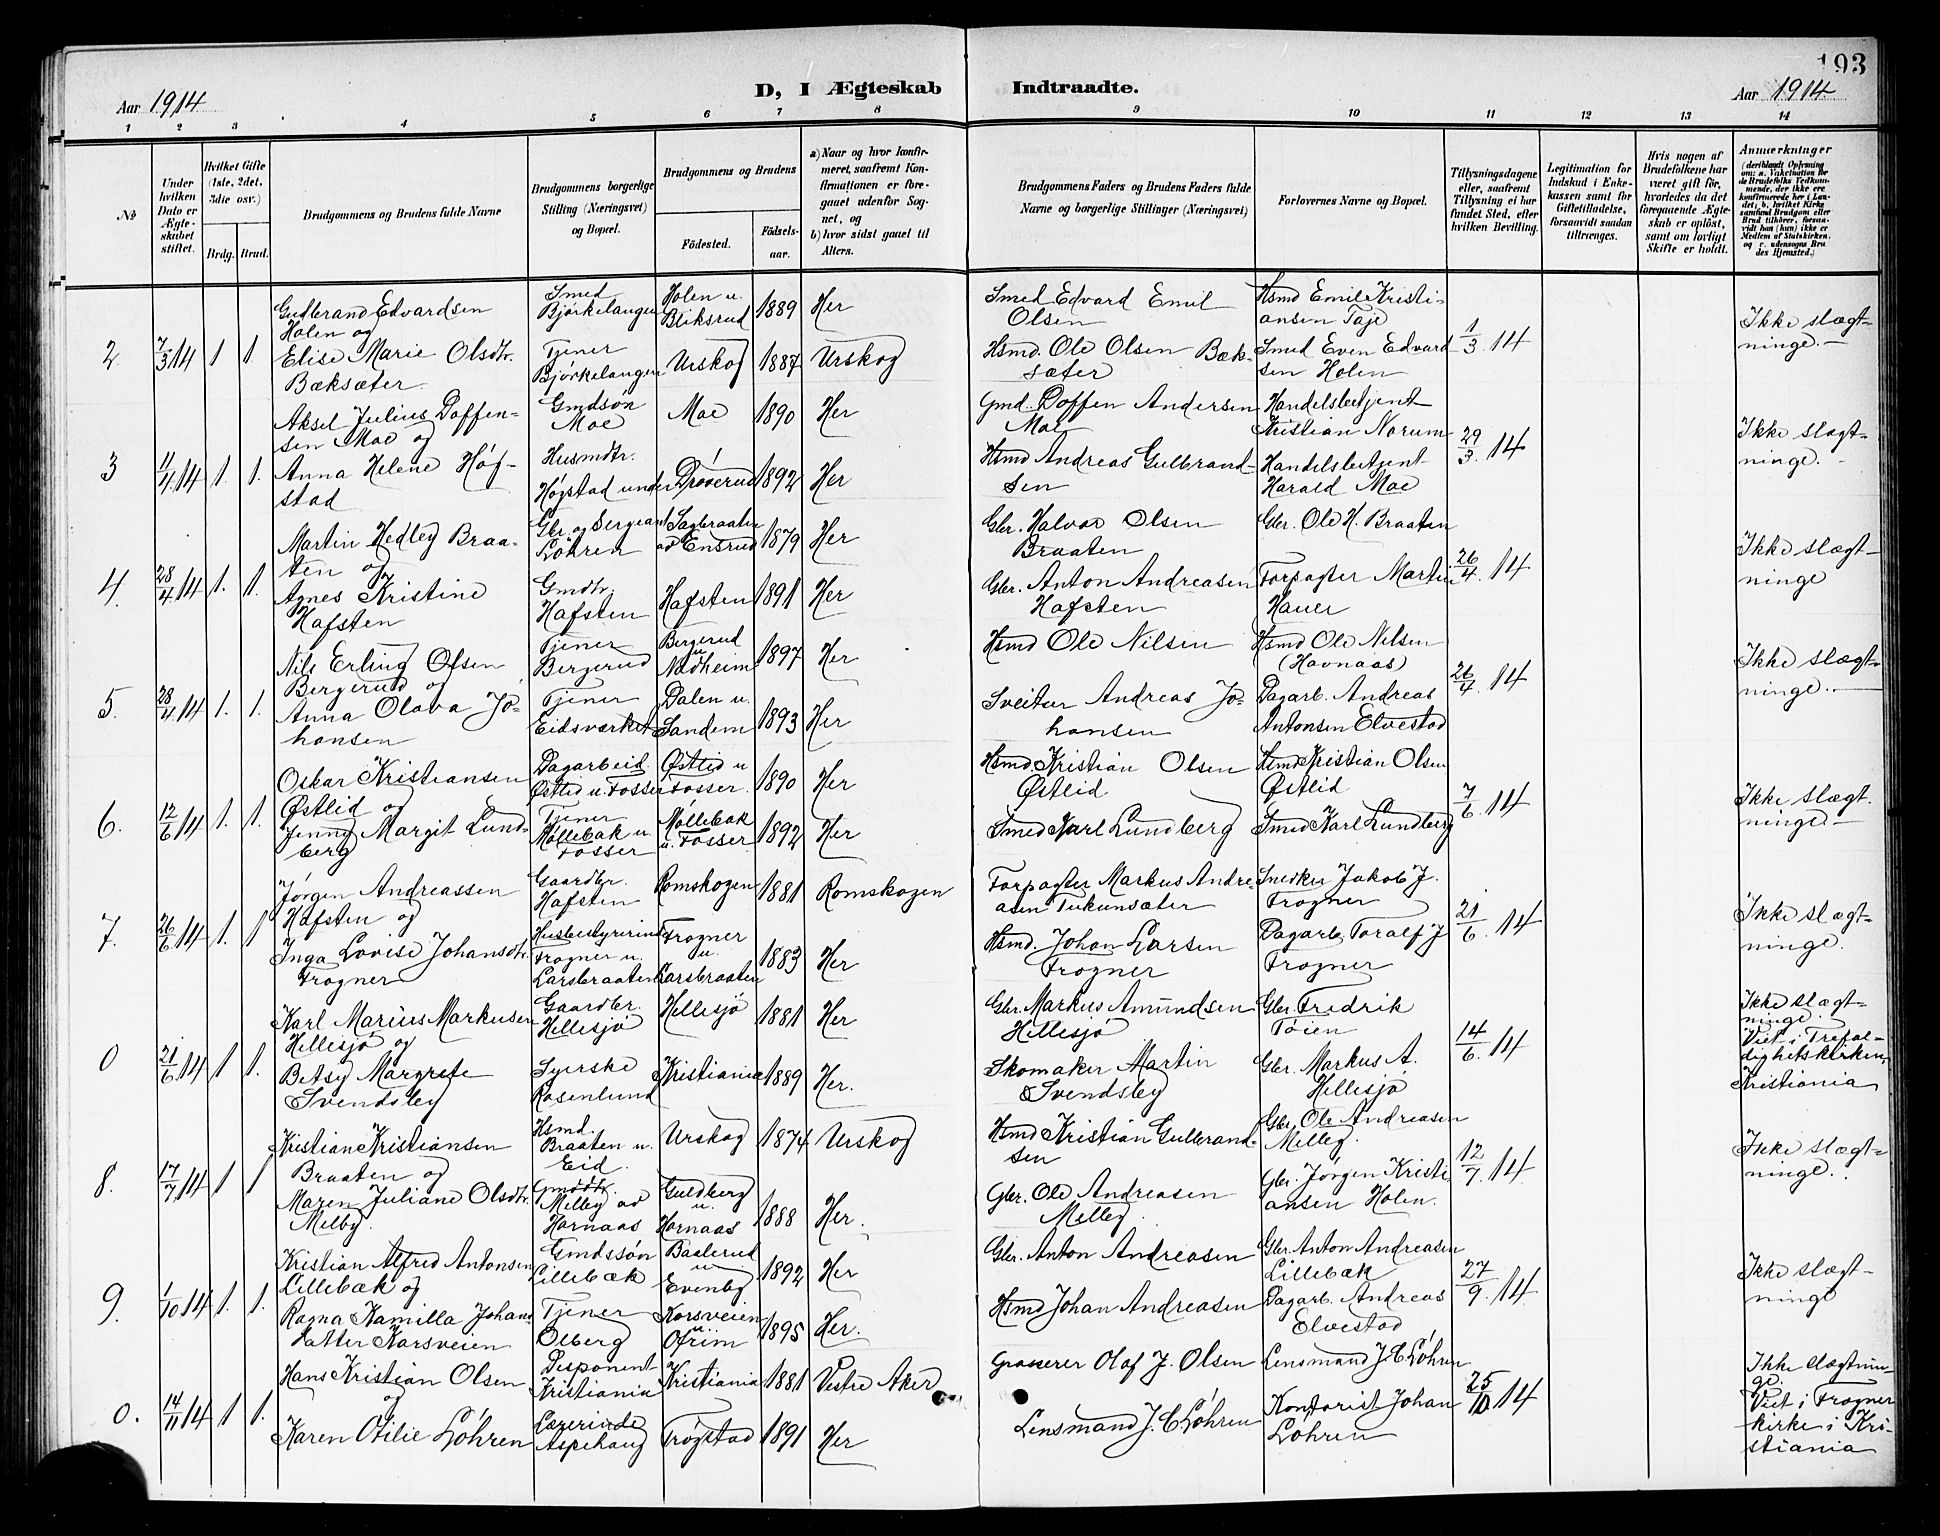 193
Aar 1914
D, I Ægteskab Indtraadte.
Aar 1914
1 2 3 4 5 6 7 8 9 10 11 12 13 14
№
Under hvilken Dato er Ægteskabet stiftet.
Hvilket Gifte (1ste, 2det, 3die osv.)
Brdg. Brud.
Brudgommens og Brudens fulde Navne
Brudgommens borgerlige Stilling (Næringsvei) og Bopæl.
Brudgommens og Brudens
Fødested.
Fødselsaar.
a) Naar og hvor konfirmeret, saafremt Konfirmationen er foregaaet udenfor Sognet, og
b) hvor sidst gaaet til Alters.
Brudgommens Faders og Brudens Faders fulde Navne og borgerlige Stillinger (Næringsvei)
Forlovernes Navne og Bopæl.
Tillysningsdagene eller, saafremt Tillysning ei har fundet Sted, efter hvilken Bevilling.
Legitimation for Indskud i Enkekassen samt for Giftetilladelse, forsaavidt saadan tiltrænges.
Hvis nogen af Brudefolkene har været gift før, hvorledes da det foregaaende Ægteskab er opløst, samt om lovligt Skifte er holdt.
Anmærkninger
(deriblandt Oplysning om: a. Vakcination for de Brudefolks Vedkommende, der ikke ere konfirmerede her i Landet; b. hvilket Kirkesamfund Brudgom eller Brud tilhører, forsaavidt han (hun) ikke er Medlem af Statskirken, og c. udensogns Brudes Hjemsted.)
2. 7/3 14 1 1.
Gudbrand Edvardsen Holen og
Smed Bjørkelangen
Holen u. Bliksrud
1889 Her
Smed Edvard Emil Olsen
Hsmd Emil Kristiansen Taje
1/3. 14
Ikke slægtninge.
Elise Marie Olsdtr. Bæksæter.
Tjener Bjørkelangen
Urskog 1887 Urskog
Hsmd. Ole Olsen Bæksæter
Smed Even Edvardsen Holen
3 11/4 14 1. 1.
Aksel Julius Doffensen Moe og
Gmdsøn Moe
Moe 1890 Her
Gmd. Doffen Andersen Moe
Handelsbetjent Kristian Norum
29/3. 14
Ikke slægtninge.
Anna Helene Høgstad
Husmdtr. Høgstad under
Drøverud 1892 Her
Hsmd Andreas Gulbrandsen
Handelsbetjent Harald Moe
4. 28/4 14 1. 1.
Martin Hedley Braaten og
Gbr. og Sergeant Løhren
Sagbraaten ad Ensrud 1879 Her
Gbr. Halvor Olsen Braaten
Gbr. Ole H. Braaten
26/4. 14
Ikke slægtninge
Agnes Kristine Hafsten
Gmdtr. Hafsten
Hafsten 1891 Her
Gbr. Anton Andreasen Hafsten
Forpagter Martin Hauer
5. 28/4 14 1. 1.
Nils Erling Olsen Bergerud og
Tjener Bergerud
Bergerud u Nædheim
1897 Her
Hsmd Ole Nilsen
Hsmd Ole Nilsen (Havnaas)
26/4. 14
Ikke slægtninge.
Anna Olava Johansen
Tjener Eidsverket
Dalen u. Sandem
1893 Her
Sveitser Andreas Johansen
Dagarb. Andreas Antonsen Elvestad
6. 12/6 14 1. 1.
Oskar Kristiansen Østlid og
Dagarbeid. Østlid u. Fosser
Østlid u Fosser.
1890 Her
Hsmd. Kristian Olsen Østlid
Hsmd Kristian Olsen Østlid
7/6. 14
Ikke slægtninge.
Jenny Margit Lundberg
Tjener Møllebak u. Fosser
Møllebak u. Fosser
1892 Her
Smed Karl Lundberg
Smed Karl Lundberg
7. 26/6 14 1. 1
Jørgen Andreassen Hafsten og
Gaardbr. Hafsten
Romskogen 1881 Romskogen
Forpagter Markus Andreasen Tukunsæter
Snedker Jakob J. Frogner
21/6. 14
Ikke slægtninge.
Inga Lovise Johansdtr. Frogner
Husbestyrerinde Frogner u. Larsbraaten
Frogner u. Larsbraaten
1883 Her
Hsmd. Johan Larsen Frogner
Dagarb. Toralf J Frogner
0 21/6 14 1 1.
Karl Marius Markusen Hellesjø og
Gaardbr. Hellesjø
Hellesjø 1881 Her
Gbr. Markus Amundsen Hellesjø
Gbr. Fredrik Tøien
14/6. 14
Ikke slægtninge.
Viet i Trefoldighetskirken, Kristiania
Betsy Margrete Svendsby
Syerske Rosenlund
Kristiania 1889 Her.
Skomaker Martin Svendsby
Gbr. Markus A. Hellesjø
8. 17/7 14 1 1
Kristian Kristiansen Braaten og
Hsmd. Braaten u. Eid.
Urskog 1874 Urskog
Hsmd Kristian Gulbrandsen
Gbr. Ole Andreasen Melby.
12/7. 14
Ikke slægtninge.
Maren Juliane Olsdtr. Melby.
Gmddtr. Melby ad Harnaas
Guldberg u. Harnaas
1888 Her.
Gbr. Ole Andreasen Melby.
Gbr. Jørgen Kristiansen Holen.
9. 1/10 14 1. 1.
Kristian Alfred Antonsen Lillebæk og
Gmdssøn Lillebæk
Baslerud u Evenby
1892 Her
Gbr. Anton Andreasen
Gbr. Anton Andreasen Lillebæk
27/9. 14
Ikke slægtninge
Ragna Kamilla Johansdatter Korsveien
Tjener Olberg
Korsveien u Ofriim
1895 Her.
Hsmd Johan Andreasen
Dagarb. Andreas Elvestad
0. 14/11 14 1 1.
Hans Kristian Olsen og
Disponent Kristiania
Kristiania 1881 Vestre Aker
Grosserer Olaf J. Olsen
Lensmand J. C Løhren
25/10 14
Ikke slægtninge.
Viet i Frogner kirke i Kristiania
Karen Otilie Løhren
Lærerinde Aspehaug
Trøgstad 1891 Her
Lensmand J. C Løhren
Kontorist Johan Løhren